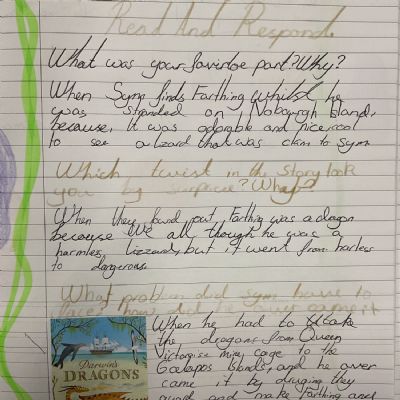 Read And Respond
What was your favirtoe part? Why?
When Sym finds Farthing whilst he
was stranded on Nobough Island,
because, it was adorable and nice/cool
to see a lizard that was clam to sym
Which twist in the story took
you by surprise? Why?
When they found out Farthing was a dragon
because we all though he was a
harmless lizzard, but it went from harless
to dangerous.
What problem did sym have to
face, how did he over came it
When he had to
the dragons from Queen
cage to the
Islands, and he over
came it by druging they
guard and make Farthing and
Darwin's
DRAGONS